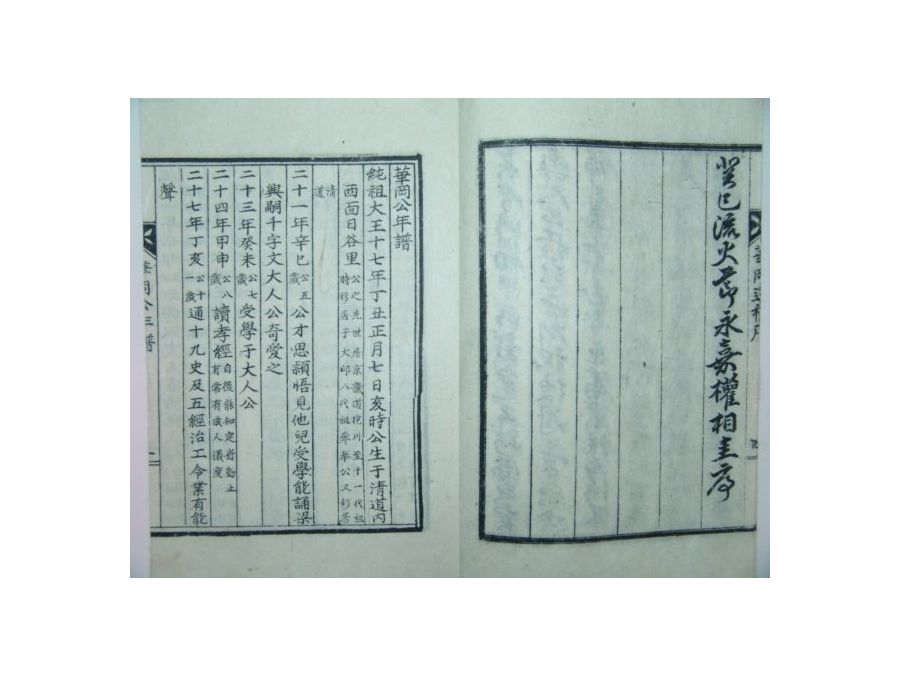 華岡遺稿序
癸巳流火節永嘉權相圭序
華岡公年譜
純祖大王十七年丁丑正月七日亥時公生于清道內
西面日谷里公之先世居京畿道抱川至十一代祖時移居于大邱八代祖參奉公又移居
清道
二十一年辛巳公五歲公才思穎悟見他兒受學能誦梁
興嗣千字文大人公奇愛之
二十三年癸未公七歲受學于大人公
二十四年甲申公八歲讀孝經自後能知定省動止有常有成人儀度
二十七年丁亥公十一歲通十九史及五經治工令業有能
聲
華岡公年譜
一